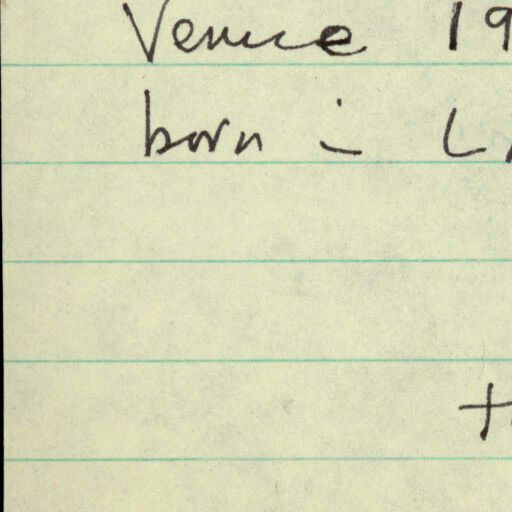 Venice 19
born in L
t